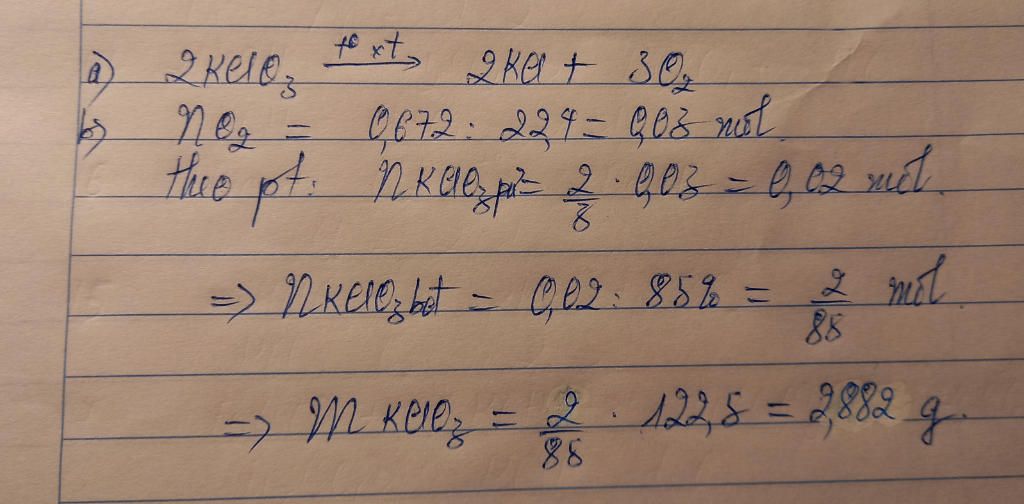 a) 2KClO₃ \xrightarrow{t⁰ xt} 2KCl + 3O₂
b) nO₂ = 0,672 : 22,4 = 0,03 mol.
theo pt: nKClO₃pứ = \frac{2}{3} . 0,03 = 0,02 mol.
=> nKClO₃bđ = 0,02 : 85% = \frac{2}{85} mol.
=> mKClO₃ = \frac{2}{85} . 122,5 = 2,882 g.